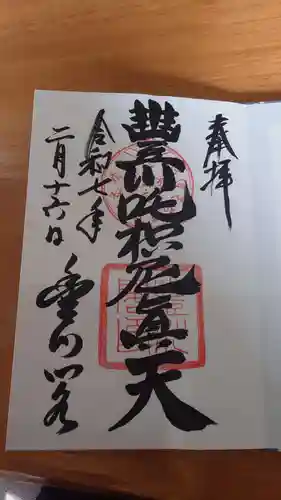 奉拝
豊川吒枳尼眞天
令和七年
二月十六日
豊川